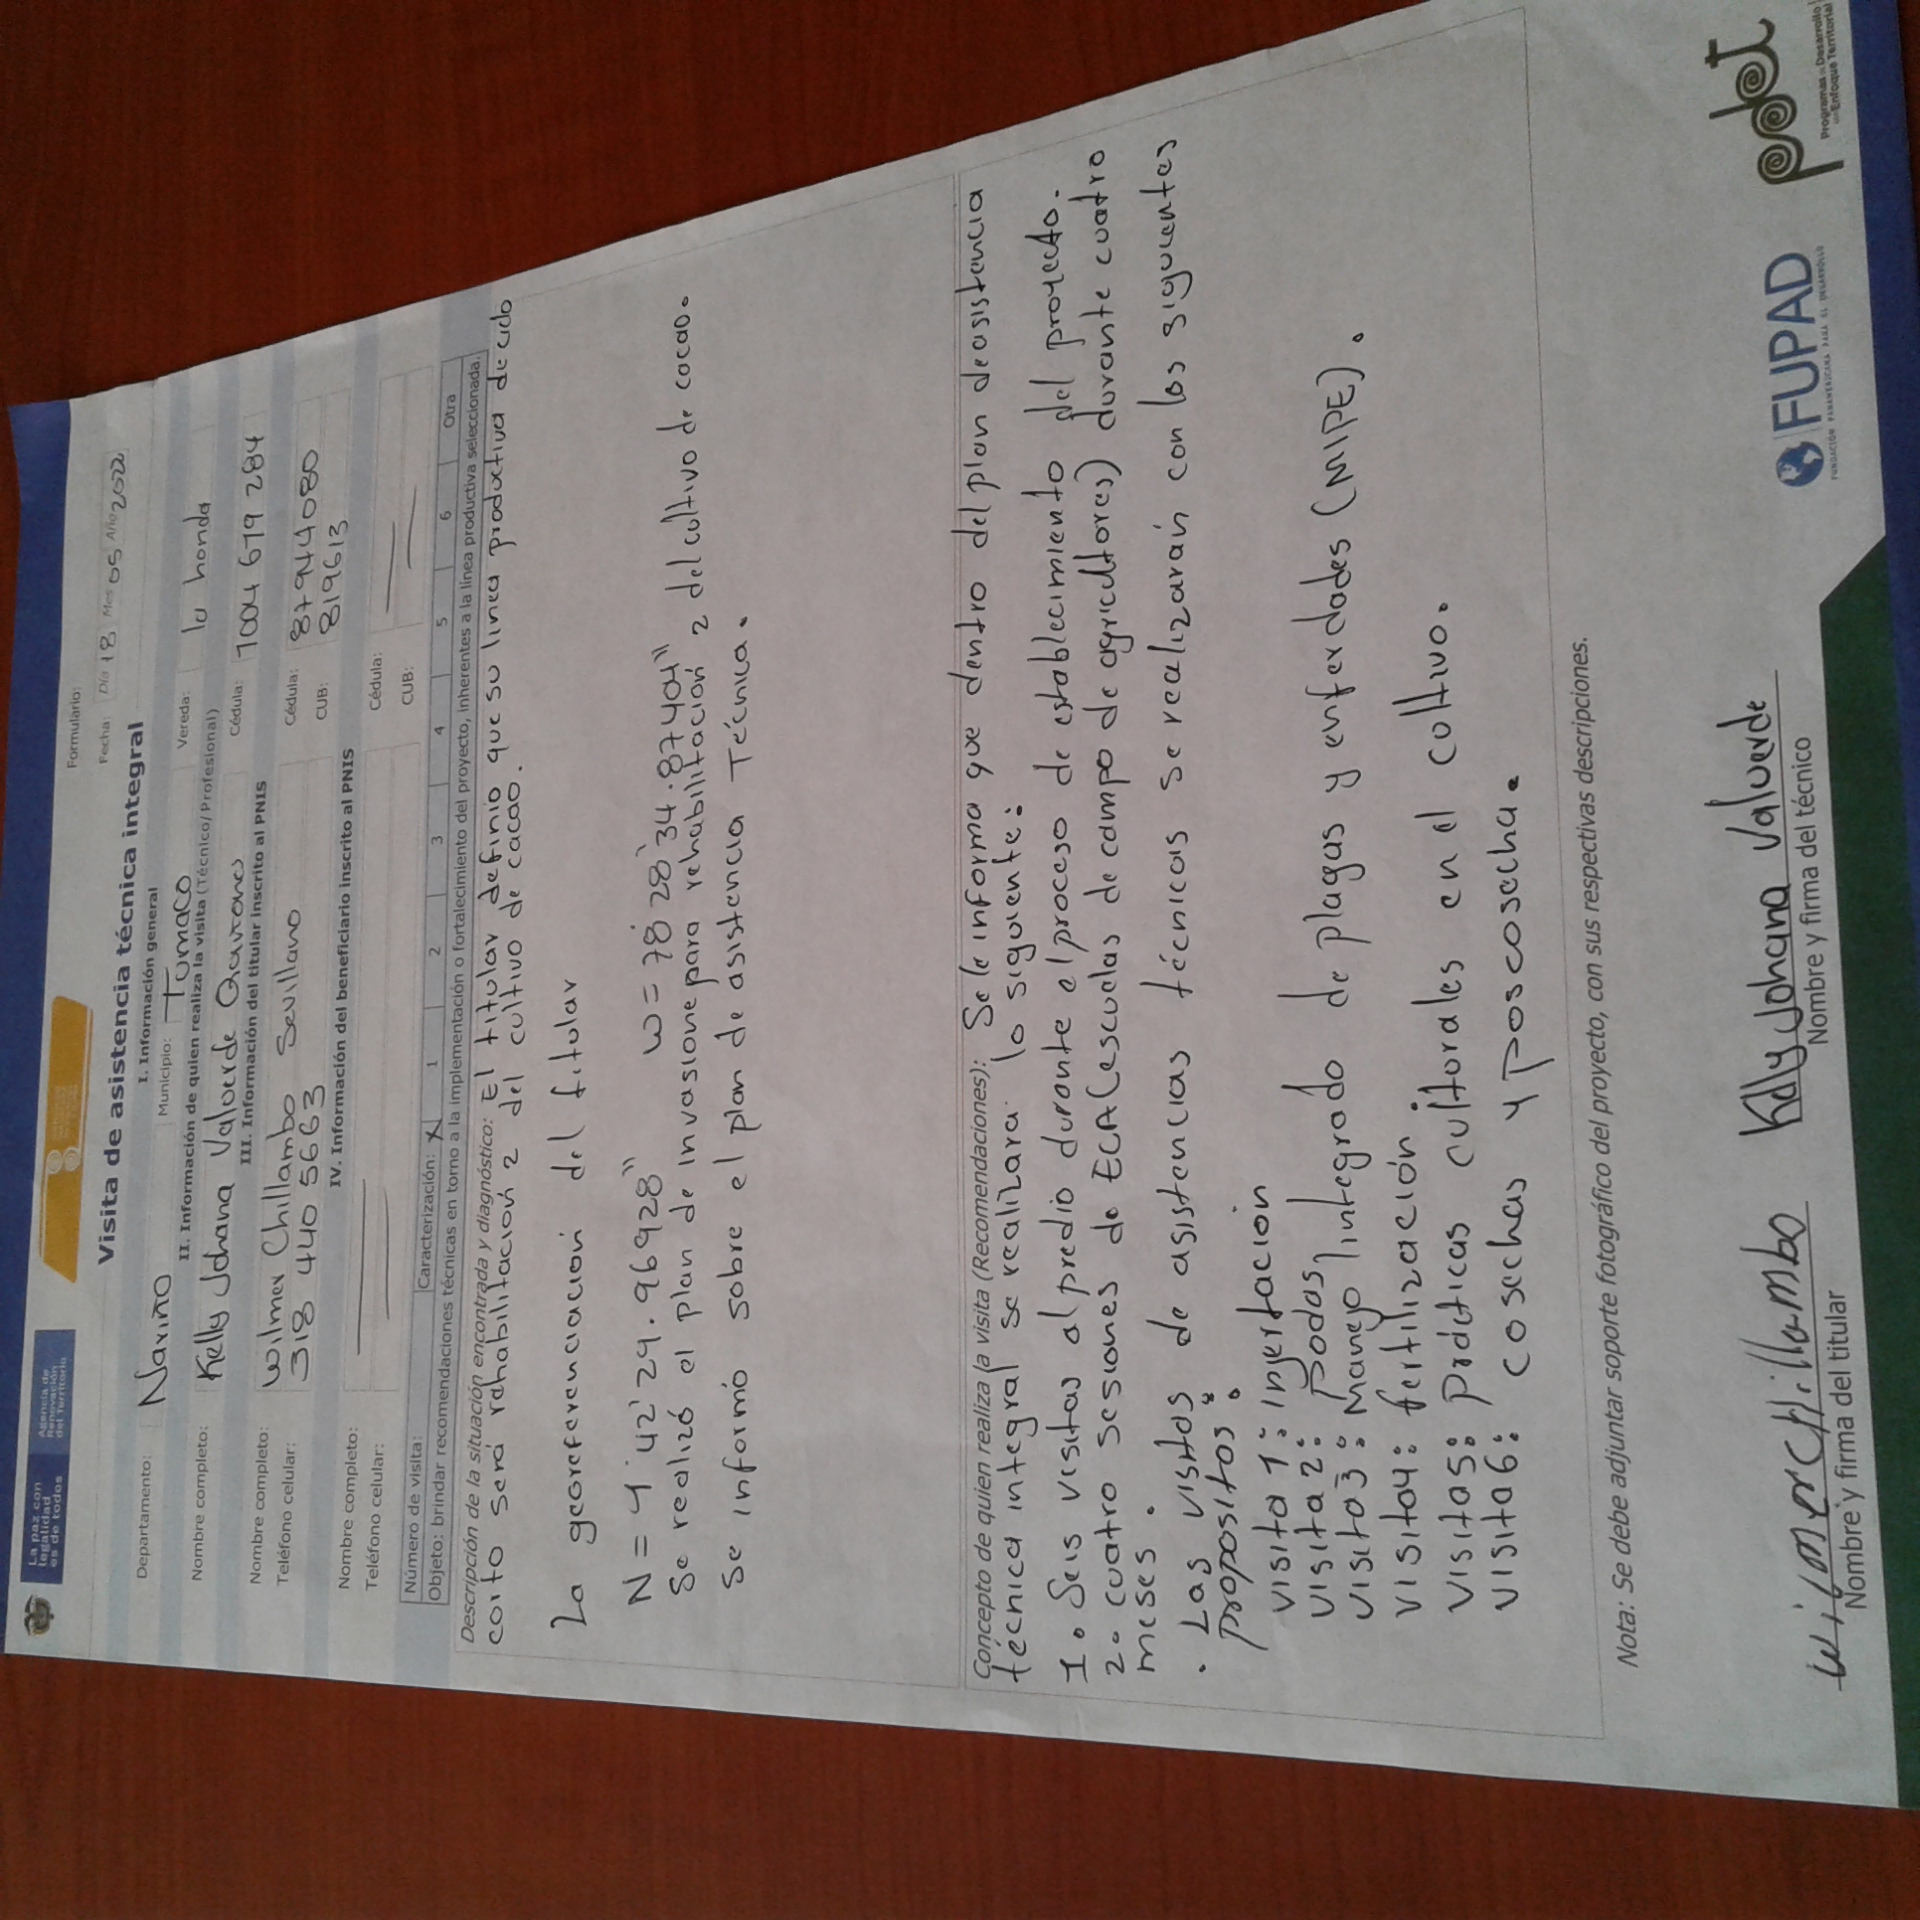 La paz con
legalidad
es de todos
Agencia de
Renovación
del Territorio
Formulario:
Visita de asistencia técnica integral
Fecha: Día 18 Mes 05 Año 2022
I. Información general
Departamento: Nariño Municipio: Tumaco Vereda: la honda
II. Información de quien realiza la visita (Técnico/Profesional)
Nombre completo: Kelly Johana Valverde Quiñones Cédula: 1004 679 284
III. Información del titular inscrito al PNIS
Nombre completo: Wilmer Chillambo Sevillano Cédula: 87944080
Teléfono celular: 318 440 5663 CUB: 819613
IV. Información del beneficiario inscrito al PNIS
Nombre completo: Cédula:
Teléfono celular: CUB:
Número de visita: Caracterización: X 1 2 3 4 5 6 Otra
Objeto: brindar recomendaciones técnicas en torno a la implementación o fortalecimiento del proyecto, inherentes a la línea productiva seleccionada.
Descripción de la situación encontrada y diagnóstico: El titular definio que su linea productiva de ciclo
corto será rehabilitación 2 del cultivo de cacao.
La georeferenciación del titular
N = 1° 42' 29.96928" W = 78° 28' 34.87404"
Se realizó el plan de invasione para rehabilitación 2 del cultivo de cacao.
se informó sobre el plan de asistencia Técnica.
Concepto de quien realiza la visita (Recomendaciones): Se le informa que dentro del plan de asistencia
técnica integral se realizara lo siguiente:
1. Seis visitas al predio durante el proceso de establecimiento del proyecto.
2. cuatro sesiones de ECA (escuelas de campo de agricultores) durante cuatro
meses.
. Las visitas de asistencias técnicas se realizarán con los siguientes
propositos:
visita 1: injertacion
visita 2: podas
visita 3: Manejo integrado de plagas y enferdades (MIPE).
visita 4: fertilización.
visita 5: prácticas culturales en el cultivo.
visita 6: cosechas y poscosecha.
Nota: Se debe adjuntar soporte fotográfico del proyecto, con sus respectivas descripciones.
Wilmer Chillambo Kelly Johana Valverde
Nombre y firma del titular Nombre y firma del técnico
FUPAD
FUNDACIÓN PANAMERICANA PARA EL DESARROLLO
pdet
Programas de Desarrollo
con Enfoque Territorial